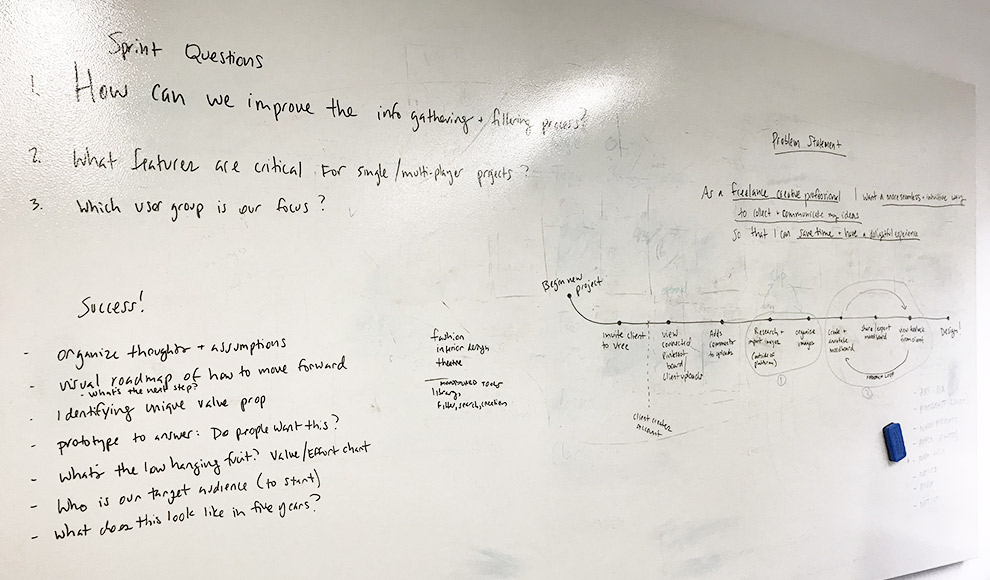 Sprint Questions
1. How can we improve the info gathering + filtering process?
2. What features are critical for single/multi-player projects?
3. Which user group is our focus?
Success!
- organize thoughts + assumptions
- visual roadmap of how to move forward
- what's the next step?
- Identifying unique value prop
- prototype to answer: Do people want this?
- What's the low hanging fruit? Value/Effort chart
- Who is our target audience (to start)
- What does this look like in five years?
fashion
interior design
theatre
library,
filter, search, creation
Problem Statement
As a freelance creative professional I want a more seamless + intuitive way
to collect + communicate my ideas
so that I can save time + have a delightful experience
Begin new
project
Invite client
to Vree
View
connected
Pinterest
board/
client uploads
Adds
commentor
to uploads
Research +
input images
(outside of
platform)
organize
images
create +
annotate
moodboard
share/export
moodboard
view feedback
from client
Design!
feedback loop
1
2
client creates
account